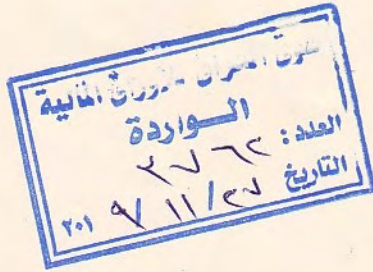 سوق العراق للاوراق المالية
الـواردة
العدد: ٣٧٦٢
التاريخ ٢٧/ ١١/ ٢٠١٩